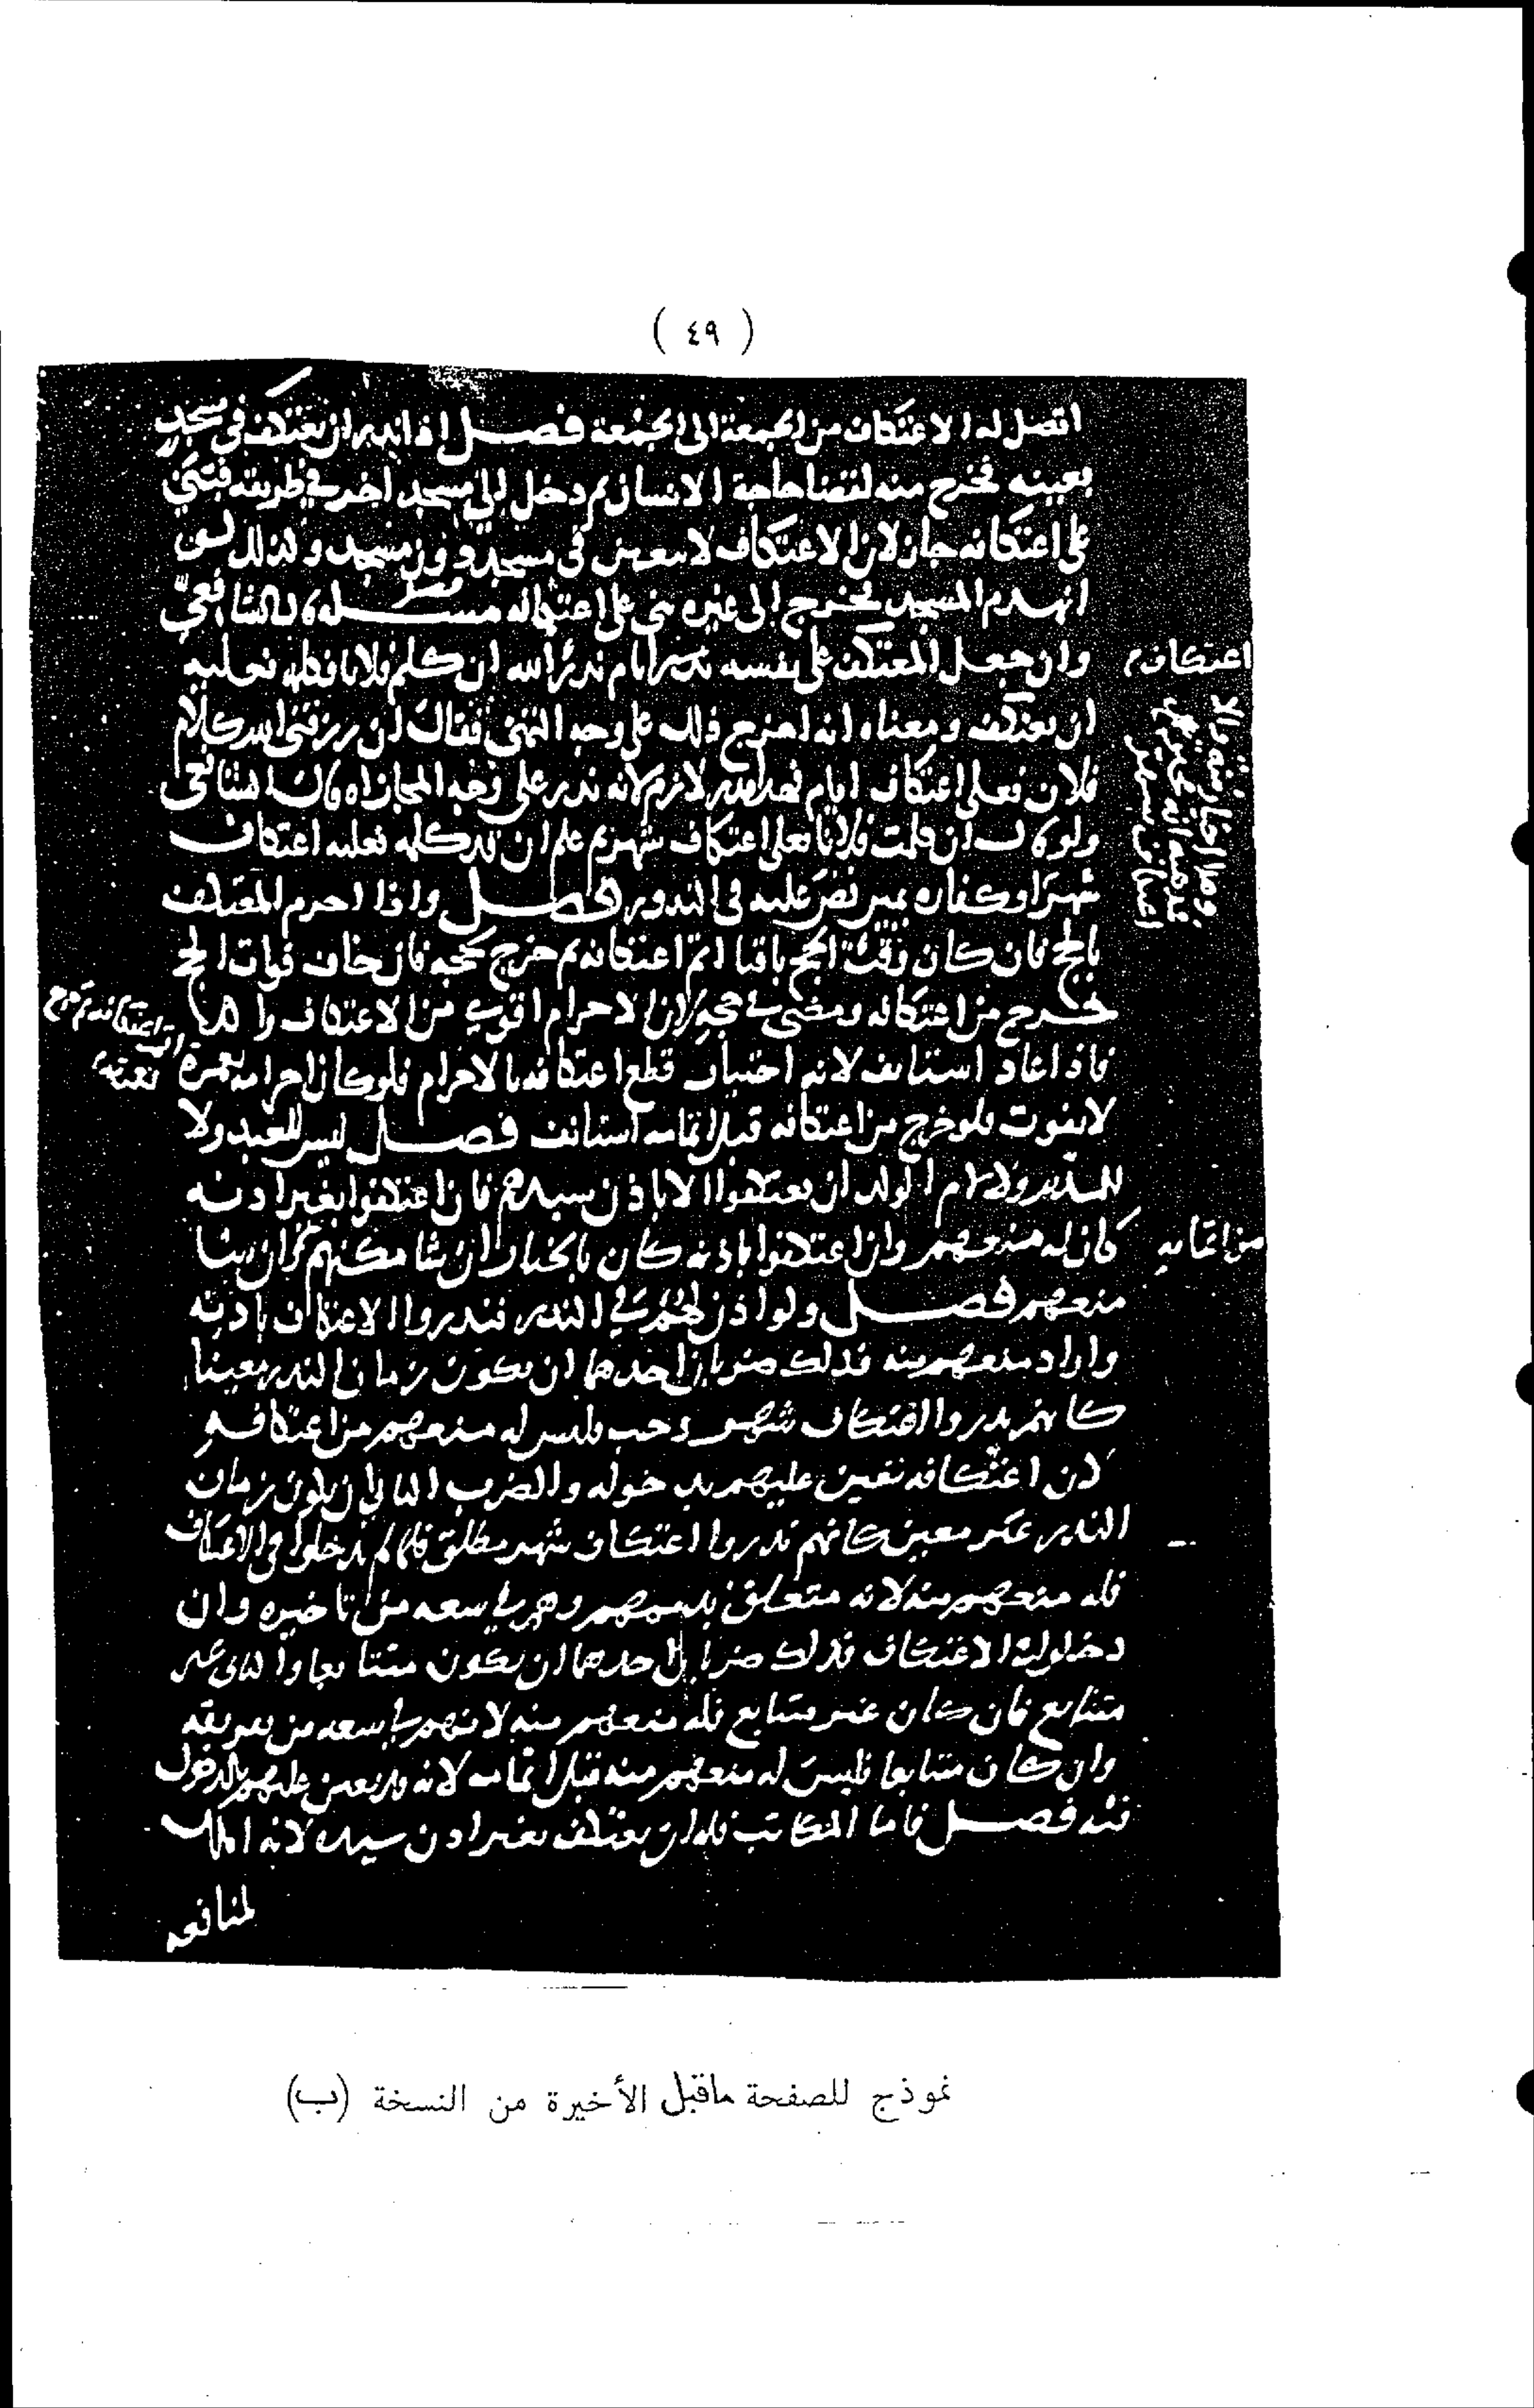 ( ٤٩ )
اتصل له الاعتكاف من الجمعة الى الجمعة فصل اذا نذر ان يعتكف فى مسجد
بعينه فخرج منه لقضا حاجة الانسان ثم دخل الى مسجد اخر فى طريقه فبنى
على اعتكافه جاز لان الاعتكاف لا يتعين فى مسجد دون مسجد ولذلك لو
انهدم المسجد فخرج الى غيره بنى على اعتكافه مسئلة قال الشافعى
وان جعل المعتكف على نفسه اعتكاف ايام نذرا لله ان كلم فلانا فكلمه فعليه
ان يعتكف ومعناه انه اخرج ذلك على وجه التمنى فقال ان رزقنى الله كلام
فلان فعلى اعتكاف ايام فهذا نذر لازم لانه نذر على وجه المجازاه قال الشافعى
ولو قال ان كلمت فلانا فعلى اعتكاف شهر ثم علم ان قد كلمه فعليه اعتكاف
شهر او كفارة يمين نص عليه فى النذور فصل واذا احرم المعتكف
بالحج فان كان وقت الحج باقيا اتم اعتكافه ثم خرج لحجه فان خاف فوات الحج
خرج من اعتكافه ومضى فى حجه لان الاحرام اقوى من الاعتكاف
فاذا عاد استانف لانه اختيار قطع اعتكافه بالاحرام فلو كان احرامه بعمرة
لا يفوت فلو خرج من اعتكافه قبل اتمامه استانف فصل ليس للعبد ولا
للمدبر ولا لام الولد ان يعتكفوا الا باذن سيدهم فان اعتكفوا بغير اذنه
كان له منعهم وان اعتكفوا باذنه كان بالخيار ان شا مكنهم وان شا
منعهم فصل ولو اذن لهم فى النذر فنذروا الاعتكاف باذنه
واراد منعهم منه فذلك ضربان احدهما ان يكون زمان النذر معينا
كانهم نذروا اعتكاف شهر رجب فليس له منعهم من اعتكافه
لان اعتكافه تعين عليهم بدخوله والضرب الثانى ان يكون زمان
النذر غير معين كانهم نذروا اعتكاف شهر مطلق فان لم يدخلوا فى الاعتكاف
فله منعهم منه لانه متعلق بذممهم وهم فى سعه من تاخيره وان
دخلوا فى الاعتكاف فذلك ضربان احدهما ان يكون متتابعا والثانى غير
متتابع فان كان غير متتابع فله منعهم منه لانهم فى سعه من تفريقه
وان كان متتابعا فليس له منعهم منه قبل اتمامه لانه قد تعين عليهم بالدخول
فيه فصل فاما المكاتب فله ان يعتكف بغير اذن سيده لانه املك
لمنافعه
اعتكاف
من اتمامه
نموذج للصفحة ماقبل الأخيرة من النسخة (ب)